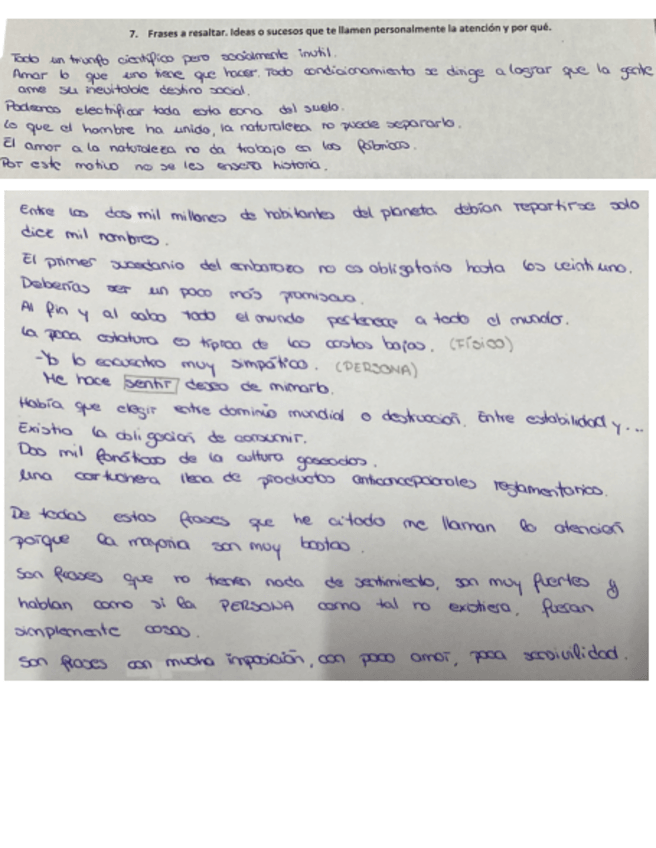 7. Frases a resaltar. Ideas o sucesos que te llamen personalmente la atención y por qué.
Todo un triunfo científico pero socialmente inutil.
Amar lo que uno tiene que hacer. Todo condicionamiento se dirige a lograr que la gente
ame su inevitable destino social.
Podremos electrificar toda esta zona del suelo.
Lo que el hombre ha unido, la naturaleza no puede separarlo.
El amor a la naturaleza no da trabajo en las fábricas.
Por este motivo no se les enseña historia.
Entre los dos mil millones de habitantes del planeta debían repartirse solo
dice mil nombres.
El primer sucedanio del embarazo no es obligatorio hasta los veintiuno.
Deberías ser un poco más promiscua.
Al fin y al cabo todo el mundo pertenece a todo el mundo.
La poca estatura es típica de las castas bajas. (FÍSICO)
-Yo lo encuentro muy simpático. (PERSONA)
Me hace sentir deseo de mimarlo.
Había que elegir entre dominio mundial o destrucción. Entre estabilidad y...
Existia la obligacion de consumir.
Dos mil fanáticos de la cultura gaseados.
una cartuchera llena de productos anticoncepcionales reglamentarios.
De todas estas frases que he citado me llaman la atencion
porque la mayoria son muy bastas.
Son frases que no tienen nada de sentimiento, son muy fuertes y
hablan como si la PERSONA como tal no existiera, fueran
simplemente cosas.
Son frases con mucha imposición, con poco amor, poca sensivilidad.